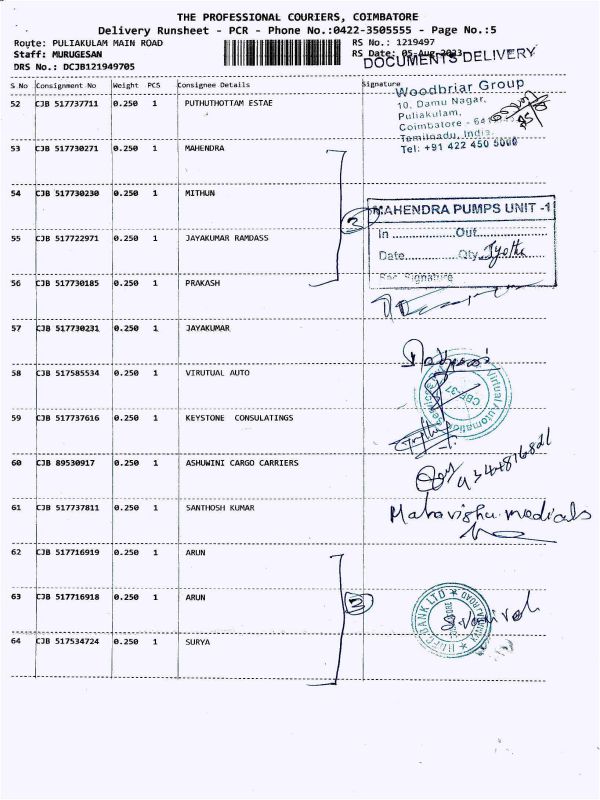 THE PROFESSIONAL COURIERS, COIMBATORE
Delivery Runsheet - PCR - Phone No.:0422-3505555 - Page No.:5
Route: PULIAKULAM MAIN ROAD
RS No.: 1219497
Staff: MURUGESAN
RS Date: 05-Aug-2023
DOCUMENTS DELIVERY
DRS No.: DCJB121949705
S No Consignment No Weight PCS Consignee Details Signature
Woodbriar Group
10, Damu Nagar,
Puliakulam,
Coimbatore - 641
Tamilnadu, India.
Tel: +91 422 450 5000
52 CJB 517737711 0.250 1 PUTHUTHOTTAM ESTAE
53 CJB 517730271 0.250 1 MAHENDRA
54 CJB 517730230 0.250 1 MITHUN
2
MAHENDRA PUMPS UNIT -1
In ............... Out...............
Date............Qty. Jyothi
Sec. Signature
55 CJB 517722971 0.250 1 JAYAKUMAR RAMDASS
56 CJB 517730185 0.250 1 PRAKASH
57 CJB 517730231 0.250 1 JAYAKUMAR
58 CJB 517585534 0.250 1 VIRUTUAL AUTO
Virtual Automation
CBE-37
59 CJB 517737616 0.250 1 KEYSTONE CONSULATINGS
60 CJB 89530917 0.250 1 ASHUWINI CARGO CARRIERS
61 CJB 517737811 0.250 1 SANTHOSH KUMAR
Mahavishnu medicals
62 CJB 517716919 0.250 1 ARUN
63 CJB 517716918 0.250 1 ARUN
3
HDFC BANK LTD
COIMBATORE
64 CJB 517534724 0.250 1 SURYA